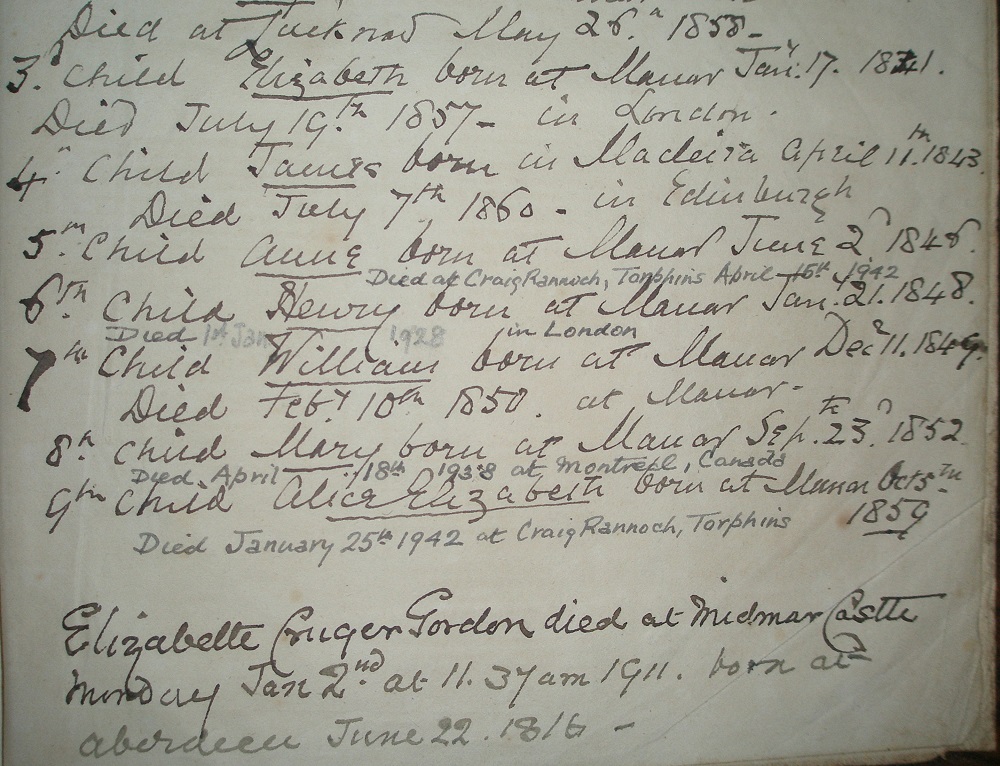 Died at Lucknow May 26.th 1858-
3.d Child Elizabeth born at Manar Jan.y 17. 1841.
Died July 19.th 1857- in London.
4.th Child James born in Madeira April 11.th 1843.
Died July 7th 1860 - in Edinburgh
5.th Child Anne born at Manar June 2d 1846.
Died at CraigRannoch, Torphins April 16th 1942
6.th Child Henry born at Manar Jan.y 21. 1848.
Died 1st Jan 1928 in London
7th Child William born at Manar Decr 11. 1849.
Died Feby 10th 1850. at Manar-
8th Child Mary born at Manar Sep.th 23d 1852.
Died April 18th 1938 at Montreal, Canada
9th Child Alice Elizabeth born at Manar Oct 5th
1859
Died January 25th 1942 at CraigRannoch, Torphins
Elizabette Cruger Gordon died at Midmar Castle
Monday Jan 2nd at 11. 37am 1911. born at
aberdeen June 22. 1816 -